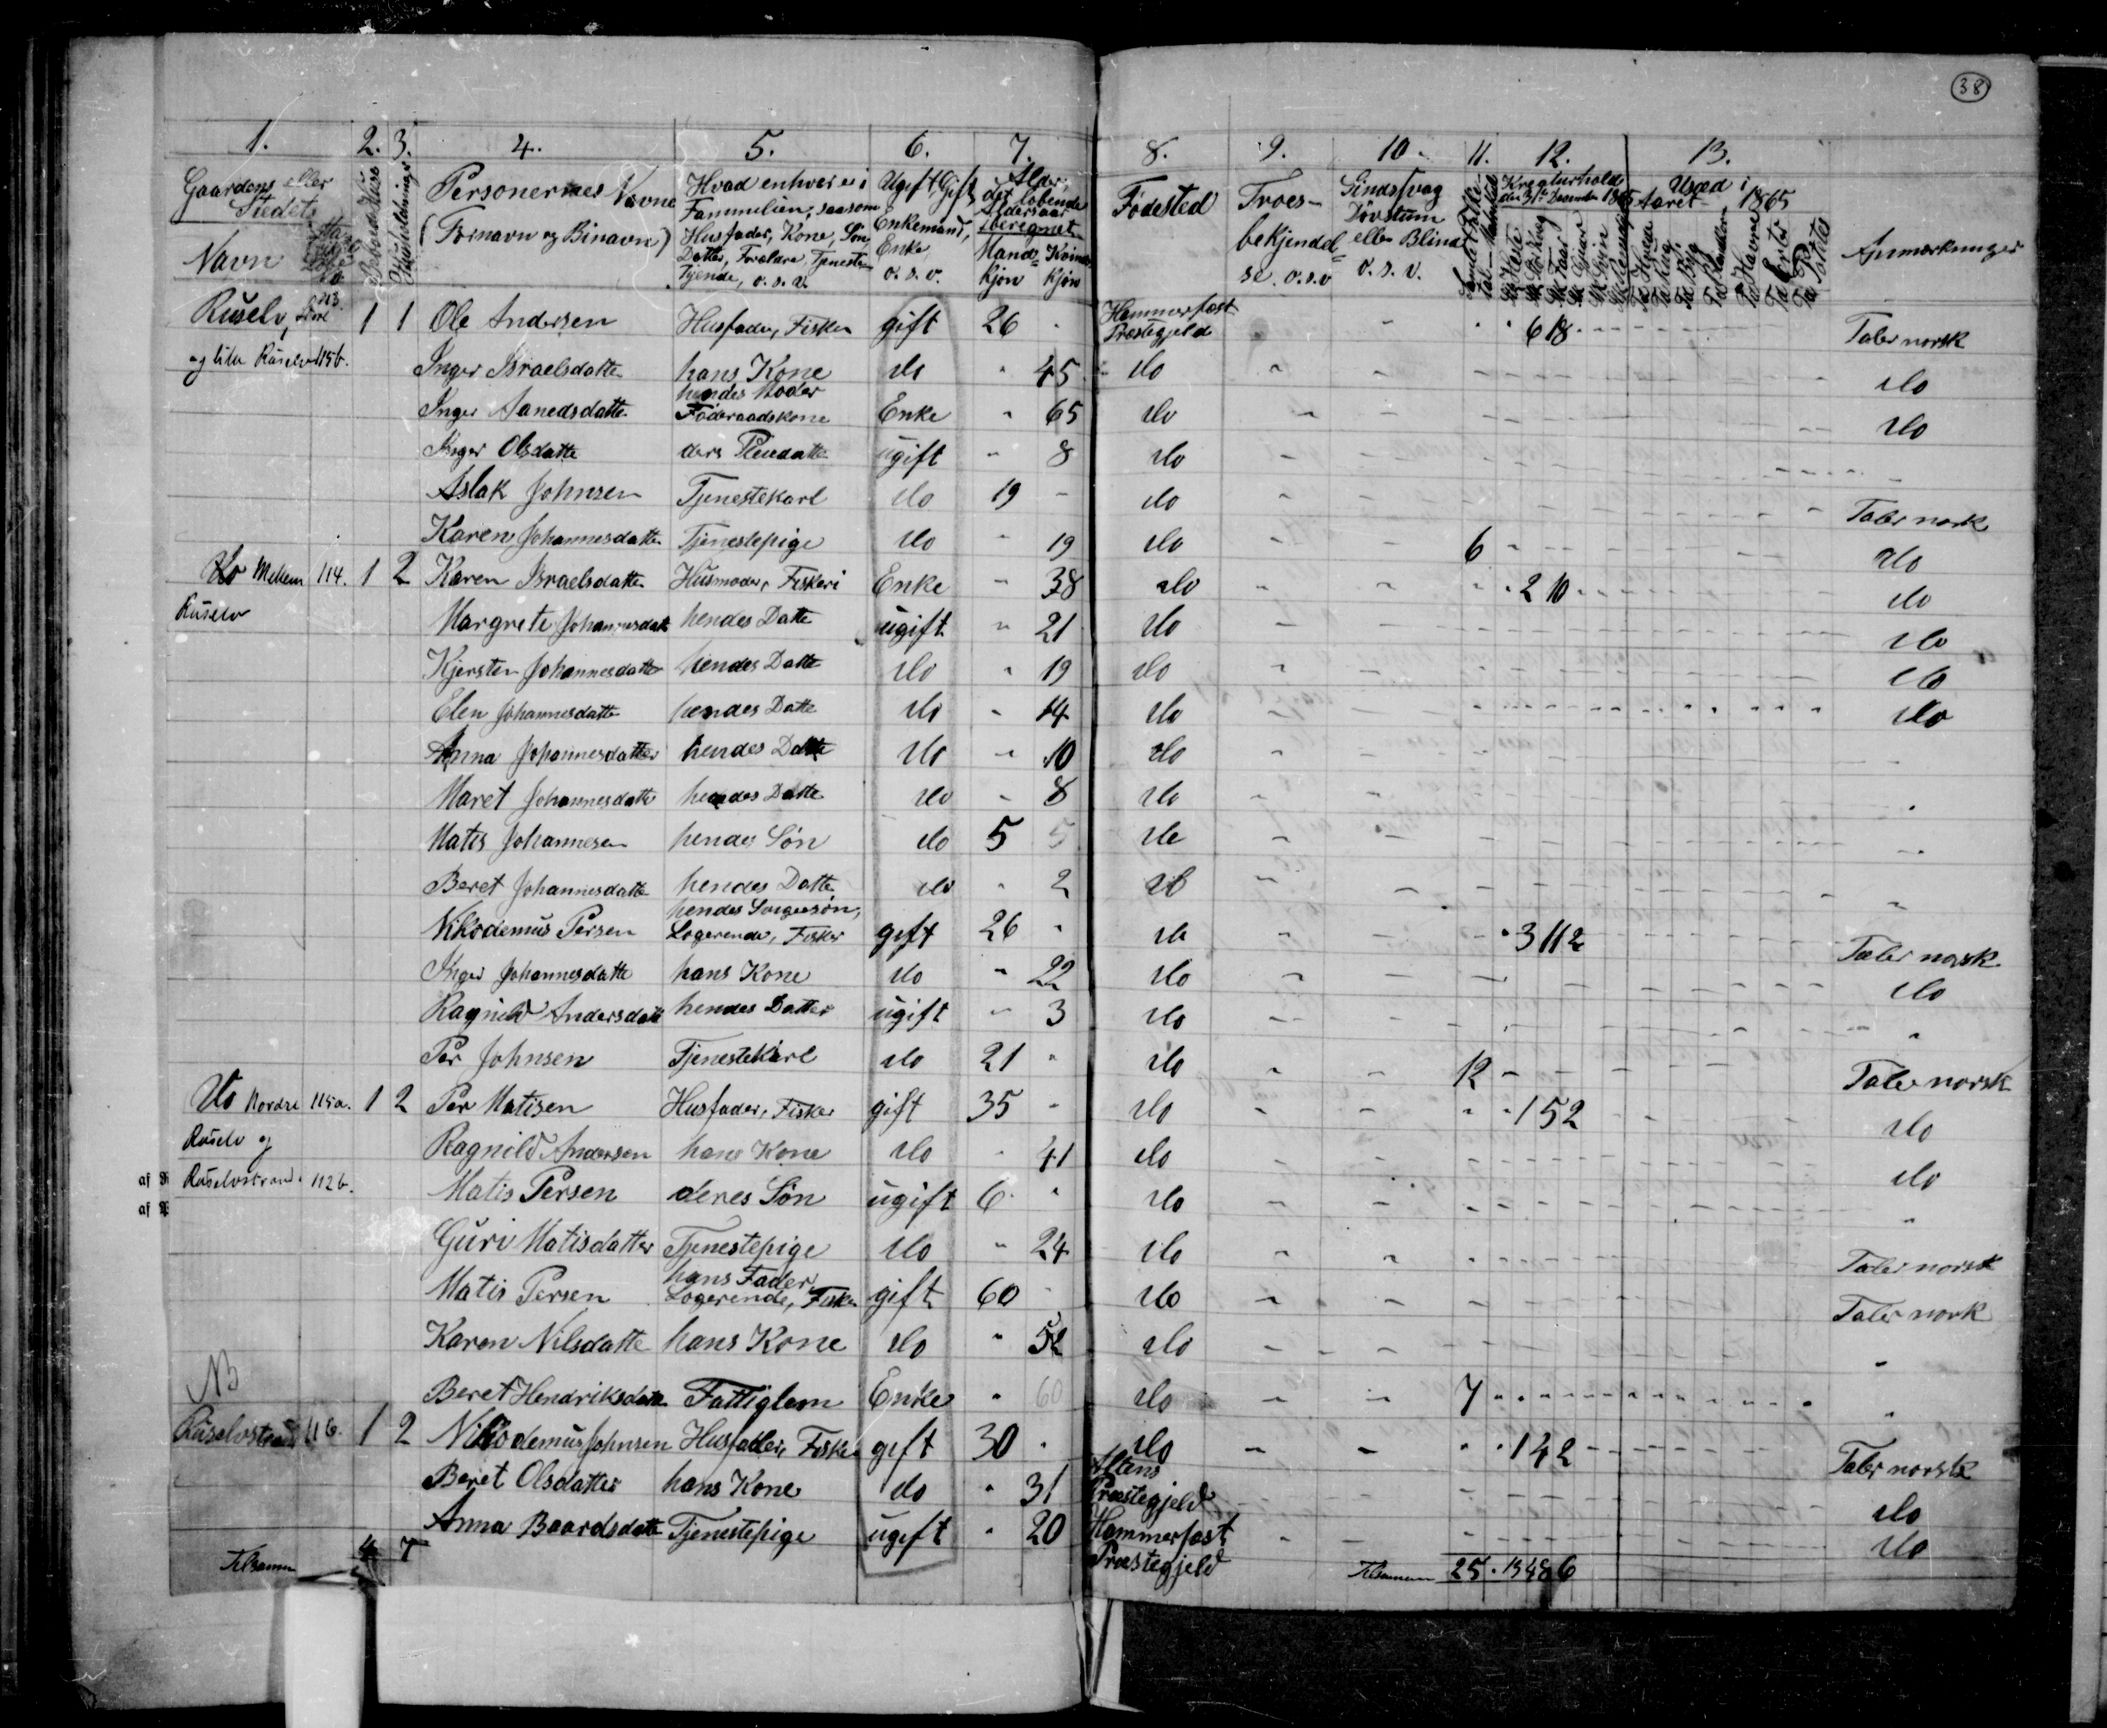 38
1. 2. 3. 4. 5. 6. 7. 8. 9. 10. 11. 12. 13.
Gaardens eller Stedets Navn
Beboede Huse
Huusholdninger
Personernes Navne
(Fornavn og Binavn)
Hvad enhver er i
Fammilien, saasom
Husfader, Kone, Søn,
Datter, Forældre, Tjeneste
Tjende, o. s. v.
Ugift, Gift,
Enkemand,
Enke
o. s. v.
Alder,
det løbende
Aldersaar
iberegnet
Mand- Kjøn
Kvinde Kjøn
Fødested
Troes-
bekjendel=
se o.s.v
Sindssvag
Døvstum
eller Blind
o. s. v.
Kreaturhold
den 31te December 1865
Udsæd i
Aaret 1865
Anmærkninger
Ruselv, 1 1 Ole Andersen Husfader, Fisker gift 26 Hammerfest Præstegjeld 6 18 Taler norsk
og lille Ruselv 115b. Inger Israelsdatte hans Kone do 45 do do
Inger Aanedsdatte hendes Moder Føderaadskone Enke 65 do do
Inger Olsdatte ders Pleiedatte ugift 8 do
Aslak Johnsen Tjenestekarl do 19 do Taler norsk
Karen Johannesdatte Tjenestepige do 19 do 6 do
Do Mellem 114. 1 2 Karen Israelsdatte Husmoder, Fiskeri Enke 38 do 2 10 do
Ruselv Margrete Johannesdatt hendes Datte ugift 21 do do
Kjersten Johannesdatte hendes Datte do 19 do do
Elen Johannesdatte hendes Datte do 14 do do
Anna Johannesdatter hendes Datte do 10 do
Maret Johannesdatte hendes Datte do 8 do
Matis Johannesen hendes Søn do 5 5 do
Beret Johannesdatte hendes Datte do 2 do
Nikodemus Persen hendes Svigersøn, Logerende, Fisker gift 26 do 3 11 2 Taler norsk
Inger Johannesdatte hans Kone do 22 do do
Ragnild Andersdatt hendes Datter ugift 3 do
Per Johnsen Tjenestekarl do 21 do 12 Taler norsk
Do Nordre 115a. 1 2 Per Matisen Husfader, Fisker gift 35 do 1 5 2 do
Ruselv og Ragnild Andersen hans Kone do 41 do do
Ruselvstrand 112b. Matis Persen deres Søn ugift 6 do
Guri Matisdatter Tjenestepige do 24 do Taler norsk
Matis Persen hans Fader, Logerende, Fisker gift 60 do Taler norsk
Karen Nilsdatte hans Kone do 52 do
NB
Beret Hendriksdatte Fattiglem Enke 60 do 7
Ruselvstrand 116. 1 2 Nikodemus Johnsen Husfader, Fisker gift 30 do 1 4 2 Taler norsk
Beret Olsdatter hans Kone do 31 Altens Præstegjeld do
Anna Baardsdatte Tjenestepige ugift 20 Hammerfest Præstegjeld do
Tilsammen 4 7 Tilsammen 25 13 48 6
af
af